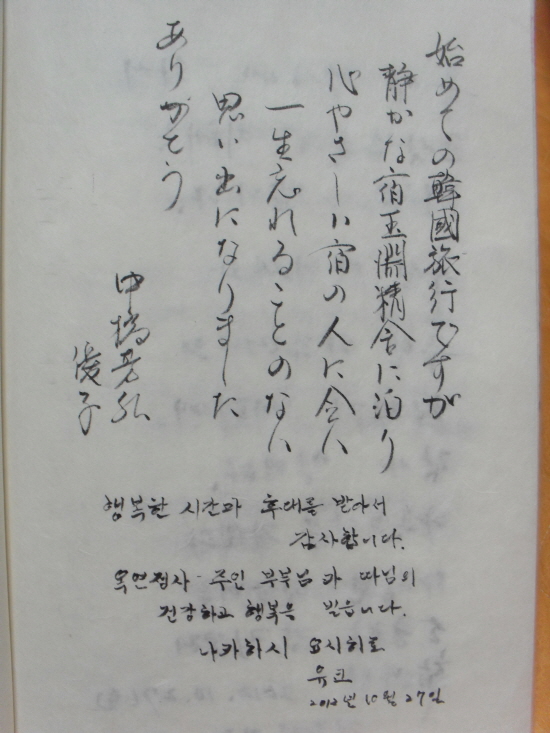 始めての韓國旅行ですが
静かな宿玉淵精舎に泊り
心やさしい宿の人に会い
一生忘れることのない
思い出になりました
ありがとう
中橋芳弘
俊子
행복한 시간과 후대를 받아서
감사합니다.
옥연정사 주인 부부님과 따님의
건강하고 행복을 빌읍니다.
나카하시 요시히로
유코
2012년 10월 27일